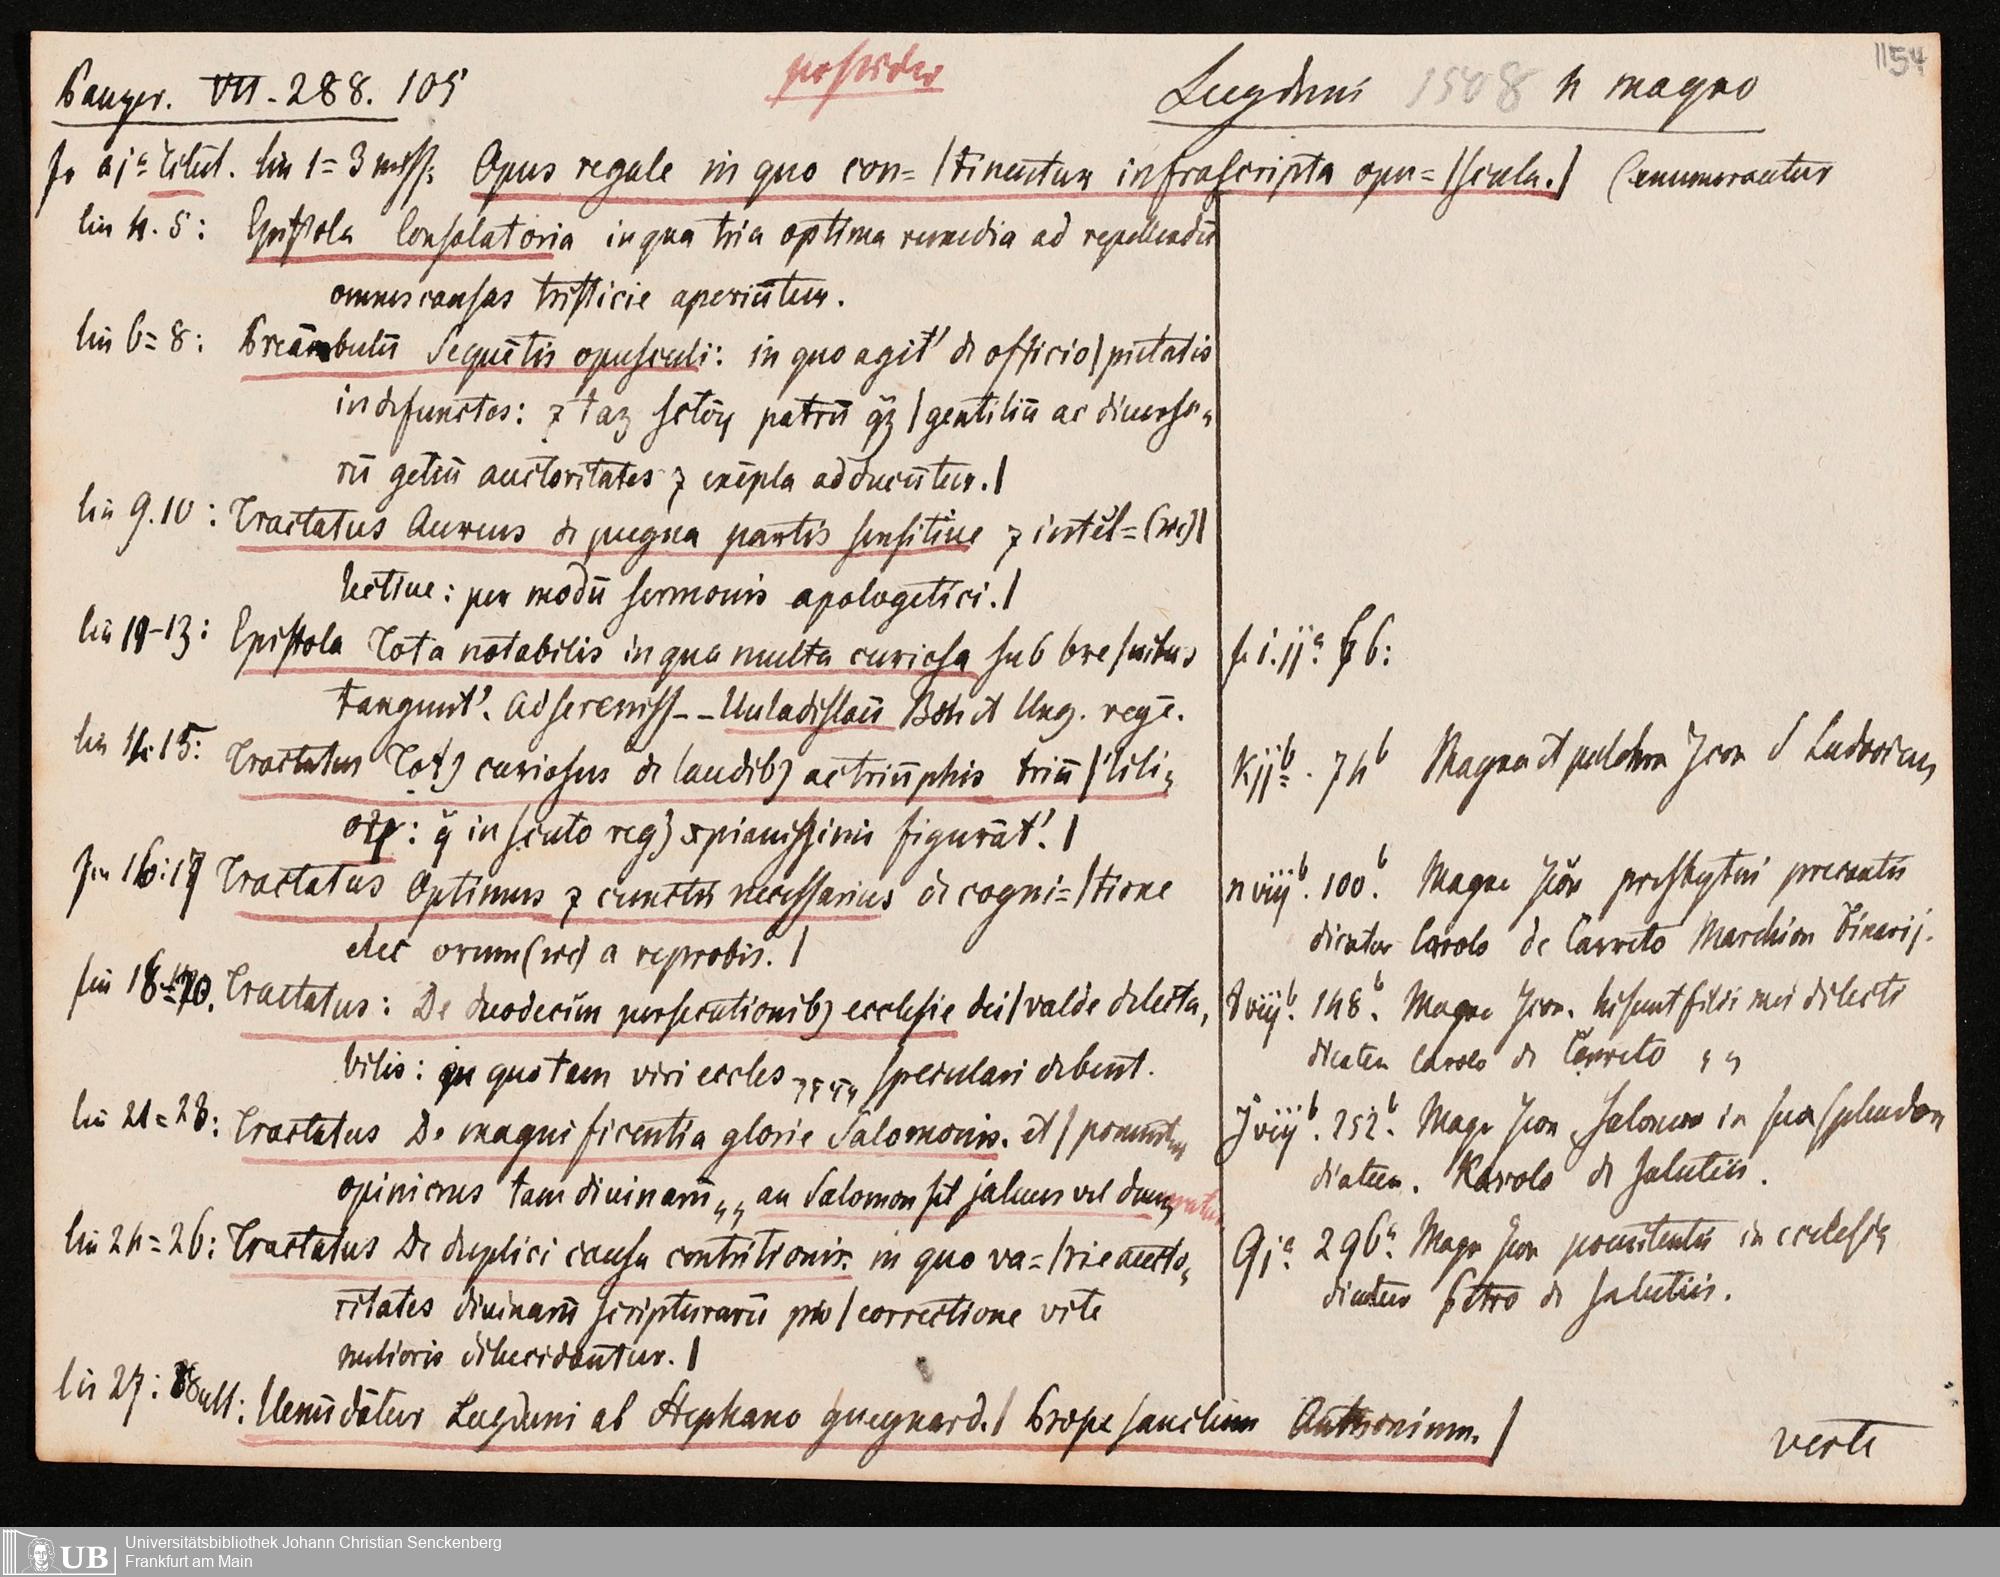 Panzer. VII - 288. 105
possideo
Lugduni 1508 4 magno
1154
Fo aj a titul. lin 1=3 miss. Opus regale in quo con=|tinentur infrascripta opu=|scula.| (enumerantur
lin 4. 5: Epistola Consolatoria in qua tria optima remedia ad repellendū
omnes causas tristicie aperiūtur.
lin 6=8: Preāmbulū Sequētis opusculi: in quo agit' de officio|pietatis
in defunctos: ⁊ taꝫ sctōꝝ patrū qꝫ|gentiliū ac diuerso=
rū getiū auctoritates ⁊ exēpla adducūtur.|
lin 9.10: Tractatus Aureus de pugna partis sensitiue ⁊ intēl=(sic)|
lectiue: per modū sermonis apologetici.|
lin 11-13: Epistola Tota notabilis in qua multa curiosa sub bre|uibus
tangunt'. Ad sereniss-- Uuladislaū Boh et Ung. regē.
lin 14. 15: Tractatus Totꝰ curiosus de laudibꝫ ac triūphis triū|lili=
oꝝ: q̄ in scuto regꝫ xpianissimi figurāt'.|
lin 16:17 Tractatus Optimus ⁊ cunctis necessarius de cogni=|tione
elec orum (sic) a reprobis.|
lin 18=20. Tractatus: De duodecim persecutionibꝫ ecclesie dei|valde delecta,
bilis: in quo tam viri eccles speculari debent.
lin 21=23: Tractatus De magnificentia glorie Salomonis. et|ponuntur
opiniones tam diuinarū „ an Salomon sit saluus vel damnatur
lin 24=26: Tractatus De duplici causa contritionis. in quo va=|rie aucto=
ritates diuinarū scripturarū pro|correctione vite
melioris dilucidantur.|
lin 27: 28 ult: |Uenūdātur Lugduni ab Stephano gueynard.|Prope sanctum Anthonium.|
fo i. ij a. 66:
Kij b. 74 b Magna et pulchra Icon S Ludovicus
n viij b. 100 b. Magna Icōn presbyteri precantis
dicatur Carolo de Carreto Marchion Finarij.
t viij b. 148 b. Magna Icon. hi sunt filii mei dilecti
dicatur Carolo de Carreto „
J viij b. 252 b. Magn Icon Salomon in sua splendor
dicatur. Karolo de Salutiis.
Q j a 296 a. Magn Icon penitentis in ecclesia
dicatur Petro de Salutiis.
verte
Universitätsbibliothek Johann Christian Senckenberg
UB Frankfurt am Main